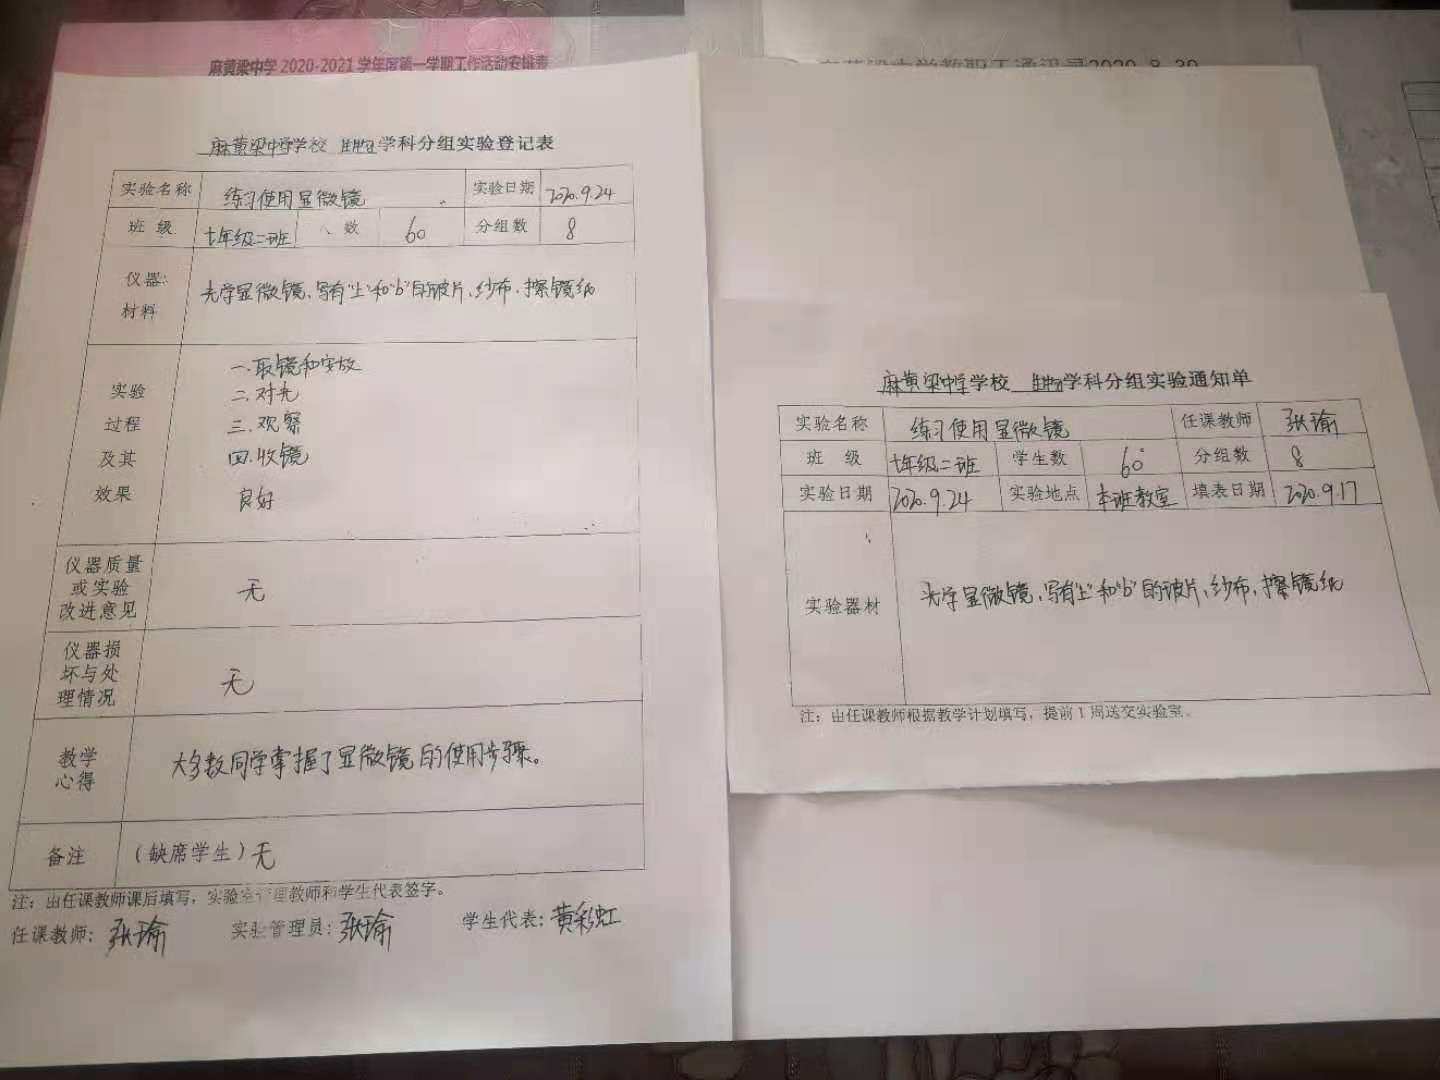 麻黄梁中学2020-2021学年度第一学期工作活动安排表
麻黄梁中学学校 生物学科分组实验登记表
实验名称 练习使用显微镜 实验日期 2020.9.24
班 级 七年级二班 人 数 60 分组数 8
仪器:
材料
光学显微镜、写有"上"和"b"的玻片、纱布、擦镜纸
实验
过程
及其
效果
一.取镜和安放
二.对光
三.观察
四.收镜
良好
仪器质量
或实验
改进意见
无
仪器损
坏与处
理情况
无
教学
心得
大多数同学掌握了显微镜的使用步骤。
备注 (缺席学生)无
注:由任课教师课后填写,实验室管理教师和学生代表签字。
任课教师:张瑜 实验管理员:张瑜 学生代表:黄彩虹
麻黄梁中学教职工通讯录2020.8.30
麻黄梁中学学校 生物学科分组实验通知单
实验名称 练习使用显微镜 任课教师 张瑜
班 级 七年级二班 学生数 60 分组数 8
实验日期 2020.9.24 实验地点 本班教室 填表日期 2020.9.17
实验器材 光学显微镜、写有"上"和"b"的玻片、纱布、擦镜纸
注:由任课教师根据教学计划填写,提前1周送交实验室。